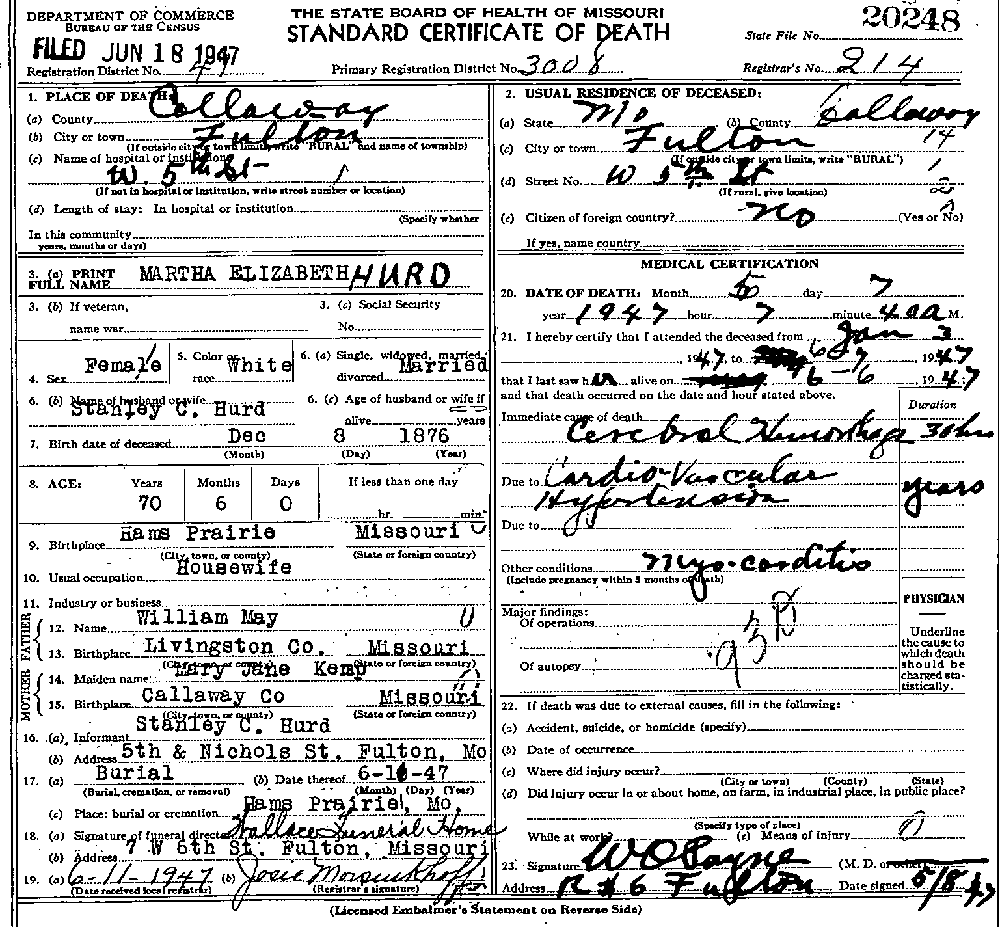 DEPARTMENT OF COMMERCE
BUREAU OF THE CENSUS
THE STATE BOARD OF HEALTH OF MISSOURI
STANDARD CERTIFICATE OF DEATH
20248
State File No.
FILED JUN 18 1947
Registration District No. 47
Primary Registration District No. 3008
Registrar's No. 214
1. PLACE OF DEATH:
(a) County Callaway
(b) City or town Fulton
(If outside city or town limits, write "RURAL" and name of township)
(c) Name of hospital or institution:
W. 5th St
(If not in hospital or institution, write street number or location)
(d) Length of stay: In hospital or institution
(Specify whether
In this community
years, months or days)
2. USUAL RESIDENCE OF DECEASED:
(a) State Mo (b) County Callaway
(c) City or town Fulton 14
(If outside city or town limits, write "RURAL")
(d) Street No. W 5th St
(If rural, give location)
(e) Citizen of foreign country? No (Yes or No)
If yes, name country
3. (a) PRINT FULL NAME MARTHA ELIZABETH HURD
3. (b) If veteran, name war
3. (c) Social Security No.
4. Sex Female
5. Color or race White
6. (a) Single, widowed, married, divorced Married
6. (b) Name of husband or wife Stanley C. Hurd
6. (c) Age of husband or wife if alive years
7. Birth date of deceased Dec 8 1876
(Month) (Day) (Year)
8. AGE: Years Months Days If less than one day
70 6 0 hr. min.
9. Birthplace Hams Prairie Missouri
(City, town, or county) (State or foreign country)
10. Usual occupation Housewife
11. Industry or business
FATHER
12. Name William May
13. Birthplace Livingston Co. Missouri
(City, town, or county) (State or foreign country)
MOTHER
14. Maiden name Mary Jane Kemp
15. Birthplace Callaway Co Missouri
(City, town, or county) (State or foreign country)
16. (a) Informant Stanley C. Hurd
(b) Address 5th & Nichols St. Fulton, Mo
17. (a) Burial (b) Date thereof 6-10-47
(Burial, cremation, or removal) (Month) (Day) (Year)
(c) Place: burial or cremation Hams Prairie, Mo.
18. (a) Signature of funeral director Wallace Funeral Home
(b) Address 7 W 6th St. Fulton, Missouri
19. (a) 6-11-1947 (b) Josie
(Date received local registrar) (Registrar's signature)
MEDICAL CERTIFICATION
20. DATE OF DEATH: Month day 7
year 1947 hour 7 minute 40 A M.
21. I hereby certify that I attended the deceased from Jan 3
1947 to 6-7 1947
that I last saw her alive on 6-6 1947
and that death occurred on the date and hour stated above.
Duration
Immediate cause of death
Cerebral Hemorrhage 30 hrs
Due to Cardio-Vascular
Hypertension years
Due to
Other conditions Myo-carditis
(Include pregnancy within 3 months of death)
Major findings:
Of operations
93D
Of autopsy
PHYSICIAN
Underline the cause to which death should be charged statistically.
22. If death was due to external causes, fill in the following:
(a) Accident, suicide, or homicide (specify)
(b) Date of occurrence
(c) Where did injury occur?
(City or town) (County) (State)
(d) Did injury occur in or about home, on farm, in industrial place, in public place?
(Specify type of place)
While at work? (e) Means of injury
23. Signature W O Payne (M. D. or other)
Address R #6 Fulton Date signed 5/8/47
(Licensed Embalmer's Statement on Reverse Side)